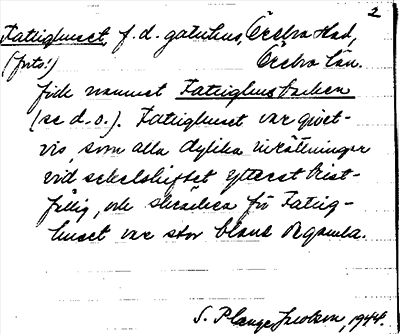 2
Fattighuset, f. d. gatuhus, Örebro stad,
(foto!) Örebro län.
före namnet Fattighusbacken
(se d. o.). Fattighuset var givet-
vis, som alla dylika inrättningar
vid sekelskiftet ytterst brist-
fällig, och skräcken för Fattig-
huset var stor bland de gamla.
S. Plange Jacobson, 1944.